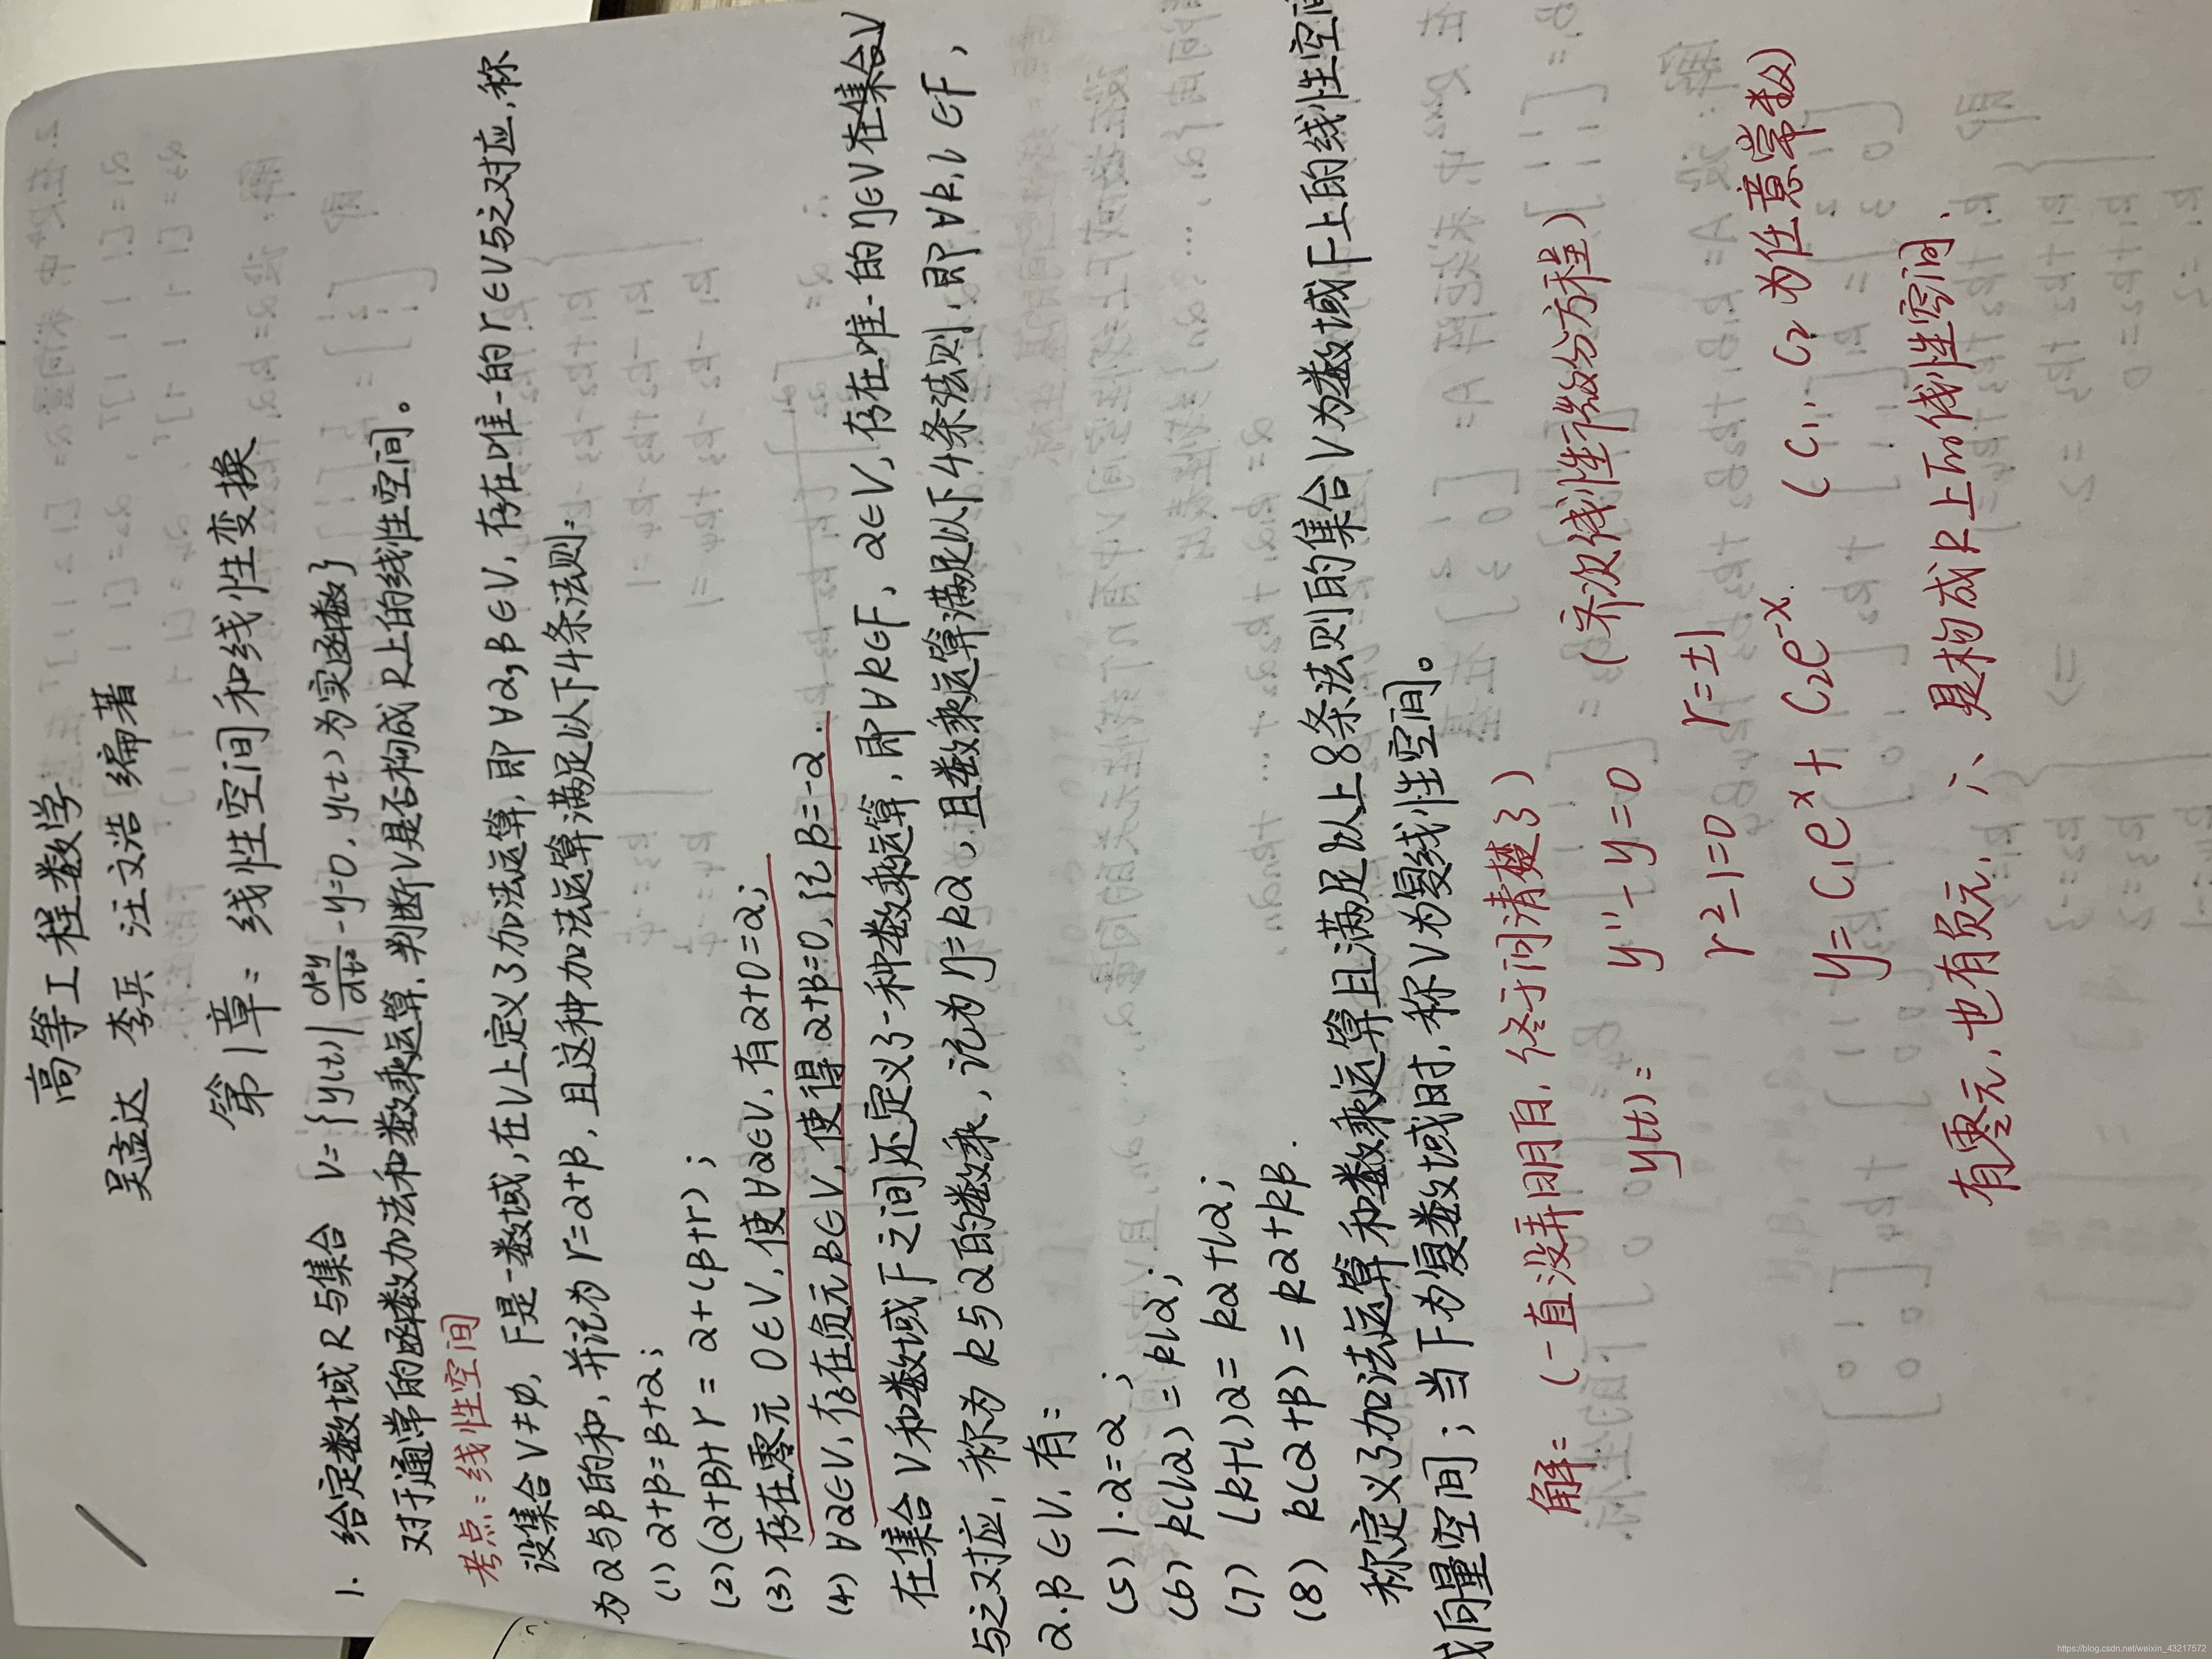 高等工程数学
吴孟达 李兵 汪文浩 编著
第1章: 线性空间和线性变换
1. 给定数域R与集合 V={y(t)|d²y/dt²-y=0, y(t)为实函数}
对于通常的函数加法和数乘运算,判断V是否构成R上的线性空间。
考点:线性空间
设集合V≠φ, F是一数域,在V上定义了加法运算,即∀α,β∈V,存在唯一的r∈V与之对应,称
为α与β的和,并记为r=α+β,且这种加法运算满足以下4条法则:
(1) α+β=β+α;
(2)(α+β)+r=α+(β+r);
(3) 存在零元0∈V,使∀α∈V,有α+0=α;
(4) ∀α∈V,存在负元β∈V,使得α+β=0,记β=-α.
在集合V和数域F之间还定义了一种数乘运算,即∀k∈F, α∈V,存在唯一的η∈V在集合V
与之对应,称为k与α的数乘,记为η=kα,且数乘运算满足以下4条法则,即∀k,l∈F,
α.β∈V,有:
(5) 1·α=α;
(6) k(lα)=klα;
(7) (k+l)α=kα+lα;
(8) k(α+β)=kα+kβ.
称定义了加法运算和数乘运算且满足以上8条法则的集合V为数域F上的线性空间
或向量空间;当F为复数域时,称V为复线性空间。
解:(一直没弄明白,终于问清楚了)
y(t)= y''-y=0 (齐次线性微分方程)
r²-1=0 r=±1
y=C₁eˣ+C₂e⁻ˣ. (C₁, C₂为任意常数)
有零元,也有负元, ∴是构成R上的线性空间.
https://blog.csdn.net/weixin_43217572